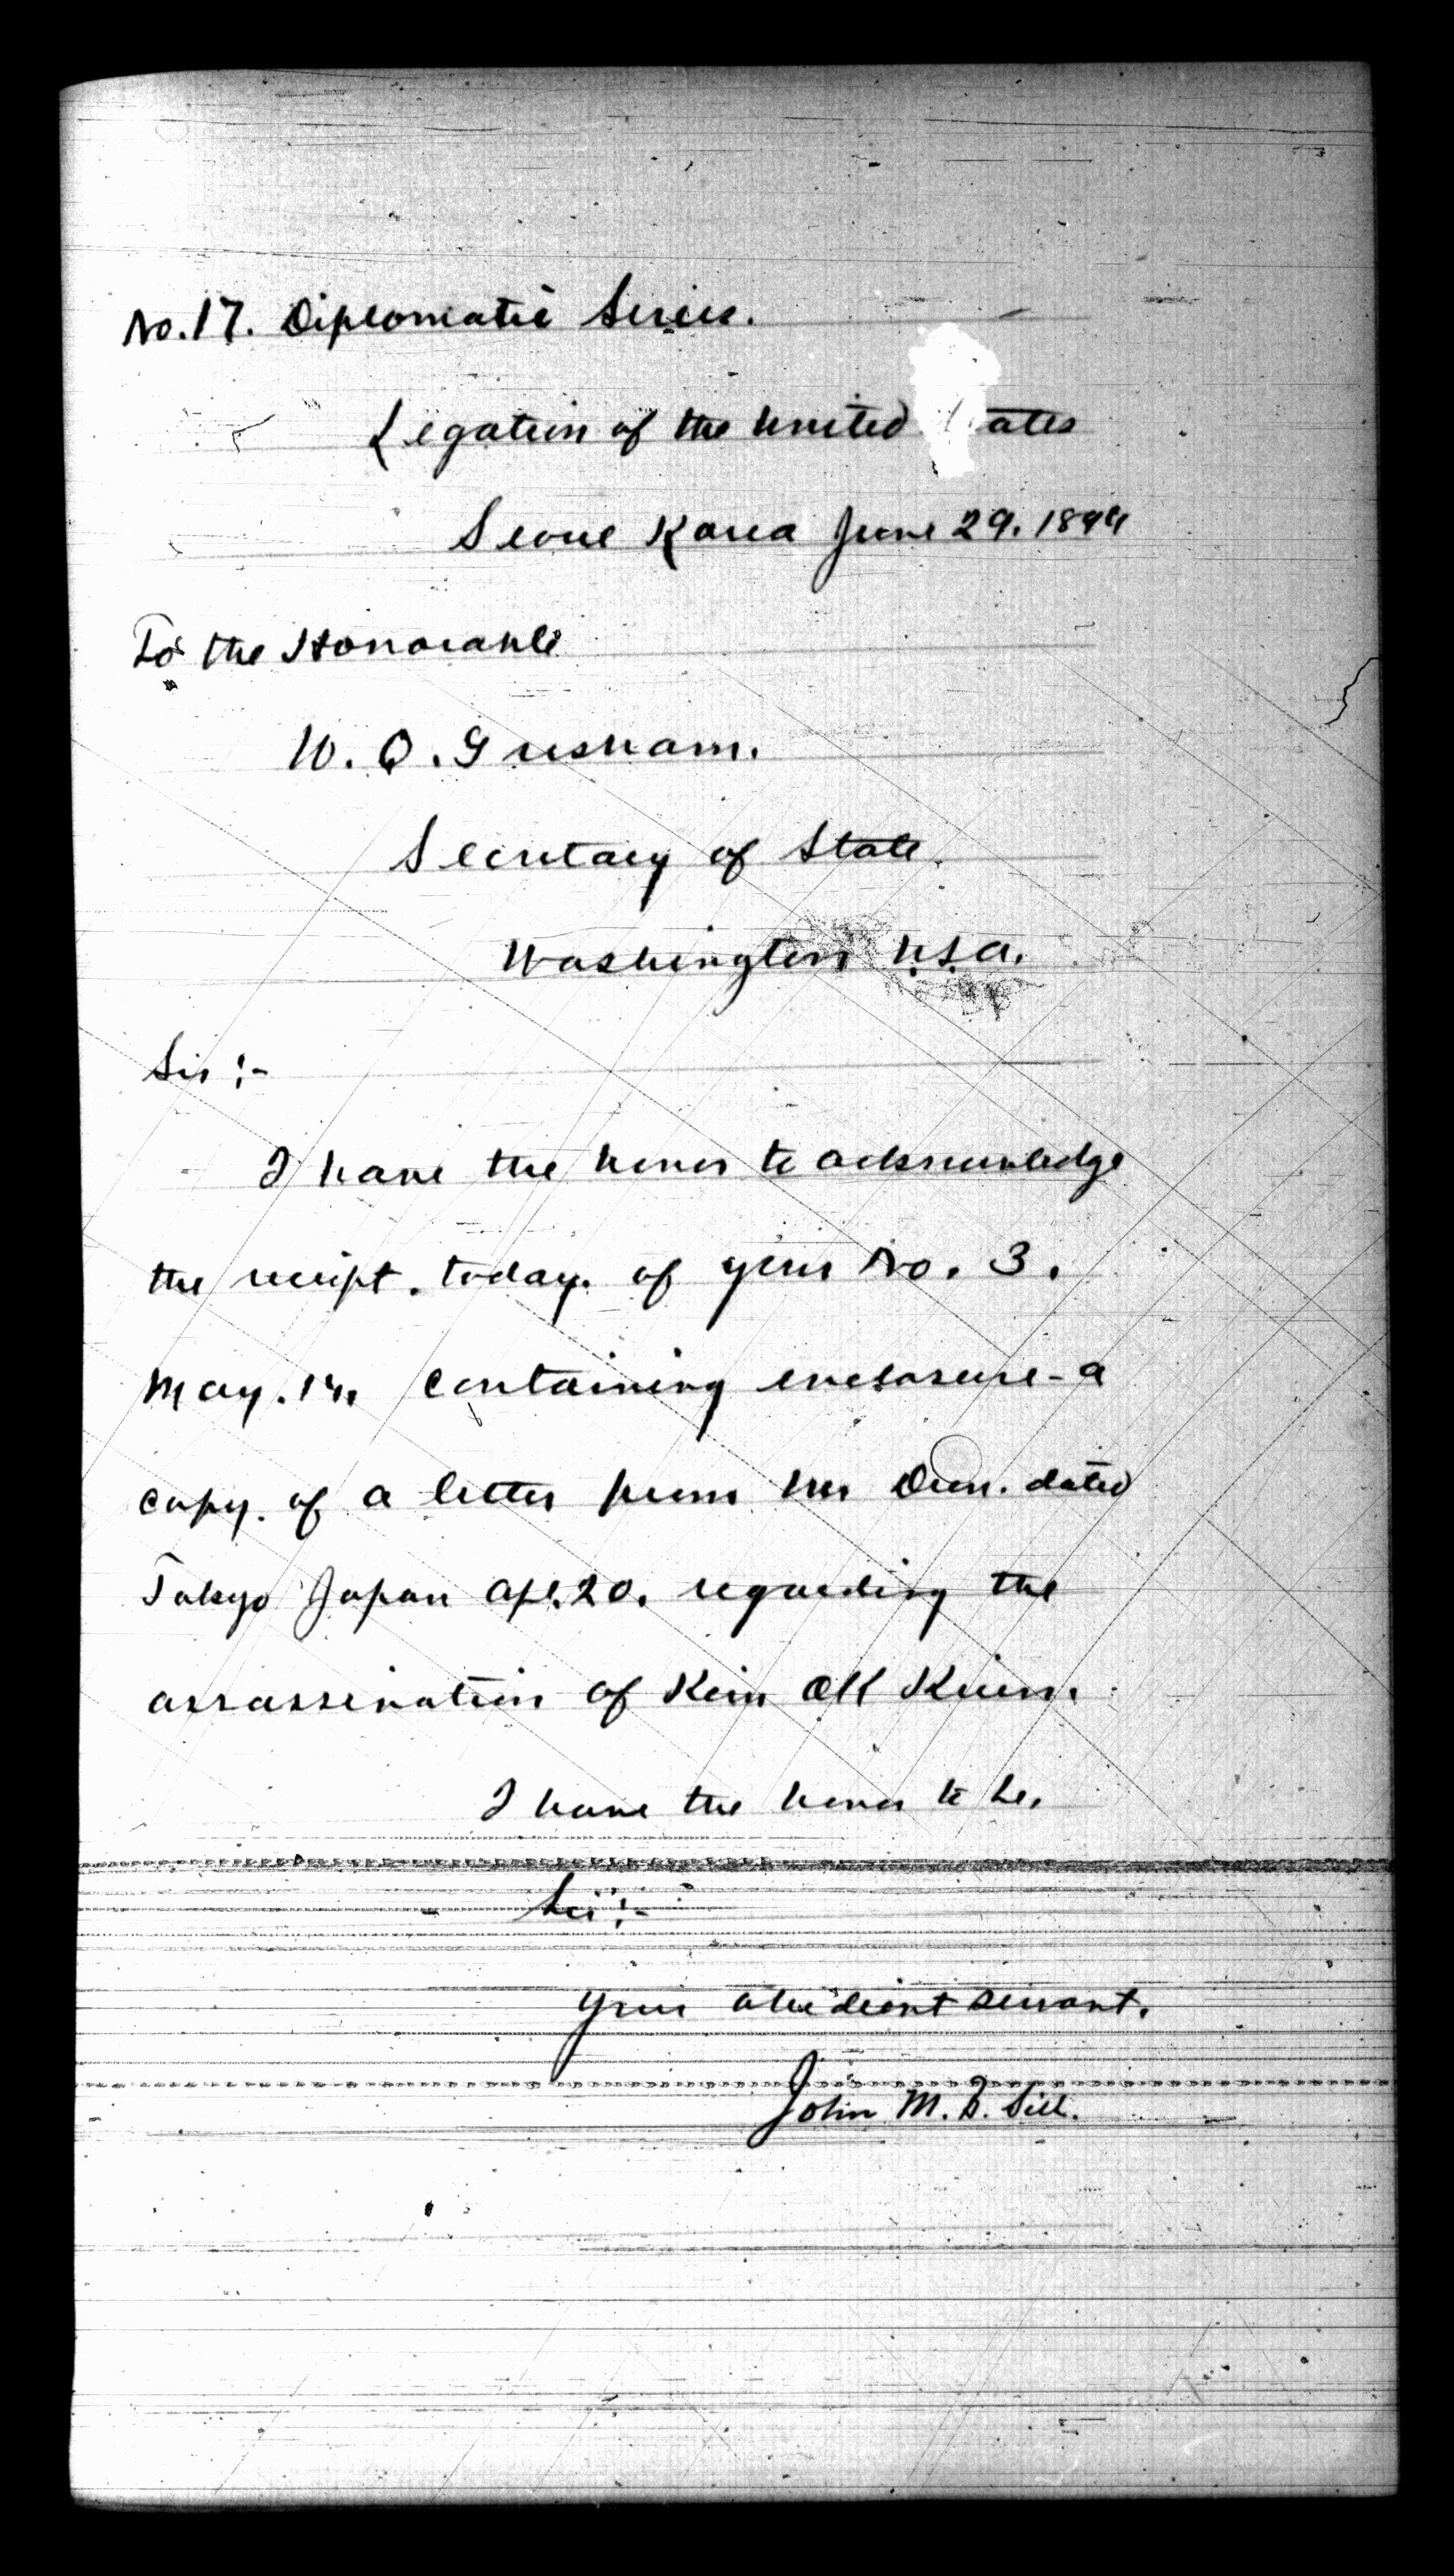 No. 17. Diplomatic Series.
Legation of the United States
Seoul Korea June 29. 1894
To the Honorable
W. Q. Gresham.
Secretary of State.
Washington U.S.A.
Sir :-
I have the honor to acknowledge
the receipt. today. of your No. 3.
May. 14. containing enclosure - a
copy. of a letter from Mr Dun. dated
Tokyo Japan Apl. 20. regarding the
assassination of Kim Ok Kuim.
I have the honor to be,
Sir :-
Your obedient servant.
John M. B. Sill.